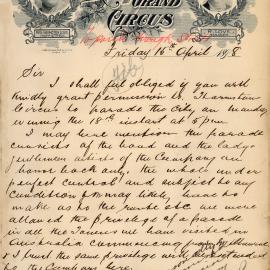 GRAND
CIRCUS
Friday 16th April 1898
Sir
I shall feel obliged if you will
kindly grant permission to
Circus to parade the City on Monday
evening the instant at 5 pm
I may here mention the parade
consists of the band and the lady
gentlemen artists of the Company on
horse back any. the whole under
perfect control and subject to any
Condition you may likely have to
make as to the route etc. we were
allowed the privilege of a parade
in all the Towns we have visited in
Australia commencing from Melbourne
& I trust the same privilege will be extended
to this Company here.